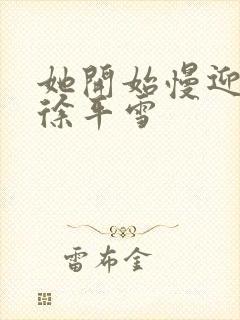 她開始慢迎
徐平雪
雷布金